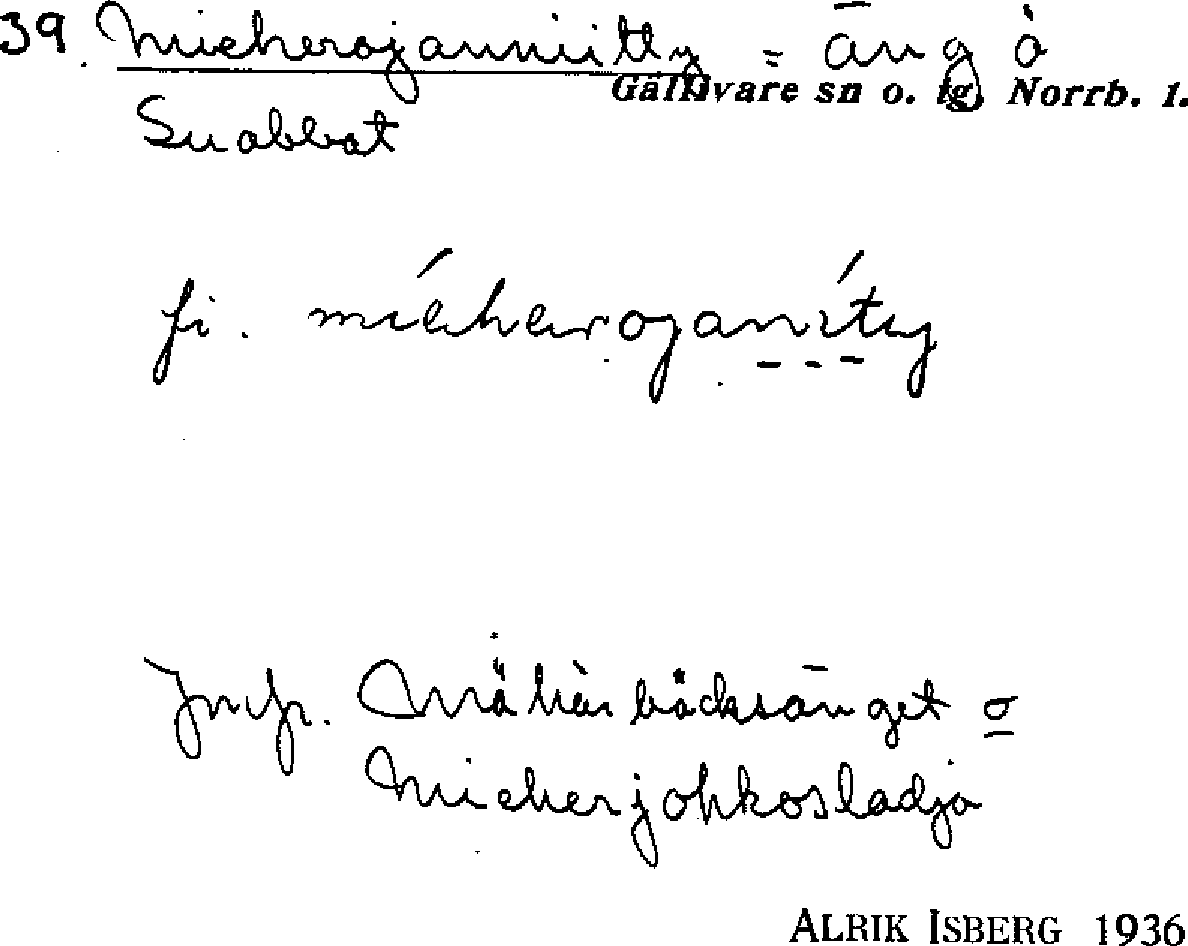 39. Mieherojanniitty = äng å
Gällivare sn o. tg, Norrb. l.
Suabbat
fi. míeherojanı́ty
Jmfr. Mähärbäcksänget o
Mieherjohkosladjo
ALRIK ISBERG 1936